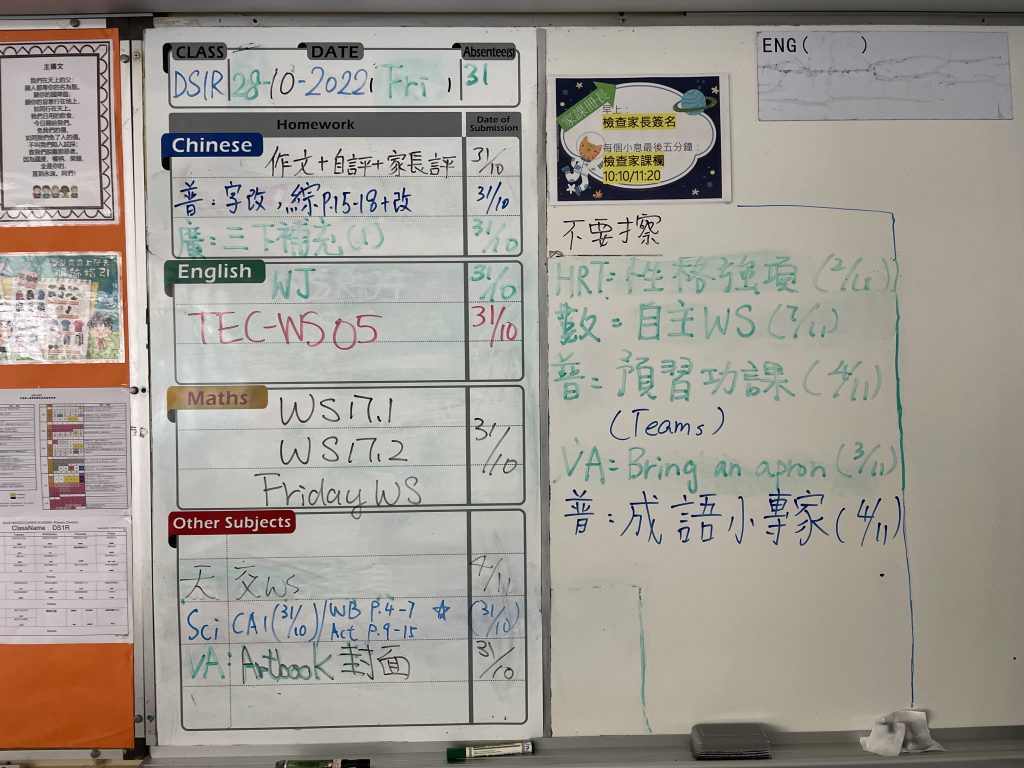 CLASS DATE Absentee(s)
DS1R 28-10-2022, Fri, 31
Homework Date of Submission
Chinese
作文+自評+家長評 31/10
普：字改，綜P.15-18+改 31/10
廣：三下補充(1) 31/10
English
WJ 31/10
TEC-WS05 31/10
Maths
WS17.1
WS17.2 31/10
Friday WS
Other Subjects
天 交WS 4/11
Sci CA1(31/10)/WB P.4-7 ☆ (31/10)
Act P.9-15
VA: Artbook 封面 31/10
家課冊長
早上：
檢查家長簽名
每個小息最後五分鐘：
檢查家課欄
10:10/11:20
ENG( )
不要擦
HRT: 性格強項 (2/11)
數：自主WS (7/11)
普：預習功課 (4/11)
(Teams)
VA: Bring an apron (3/11)
普：成語小專家 (4/11)
主禱文
我們在天上的父:
願人都尊你的名為聖,
願你的國降臨,
願你的旨意行在地上,
如同行在天上。
我們日用的飲食,
今日賜給我們,
免我們的債,
如同我們免了人的債,
不叫我們陷入試探;
救我們脫離那惡者。
因為國度、權柄、榮耀,
全是你的,
直到永遠。阿們!
服飾指引
ClassName : DS1R